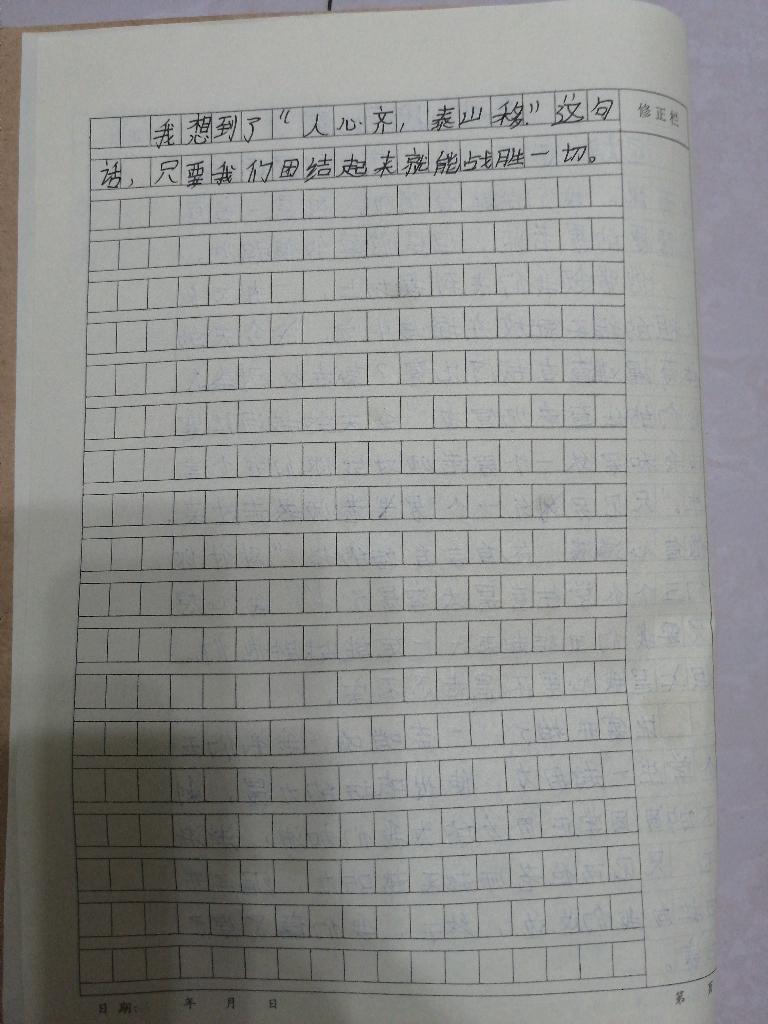 修正栏
我想到了“人心齐，泰山移”这句
话，只要我们团结起来就能战胜一切。
日期： 年 月 日
第 页